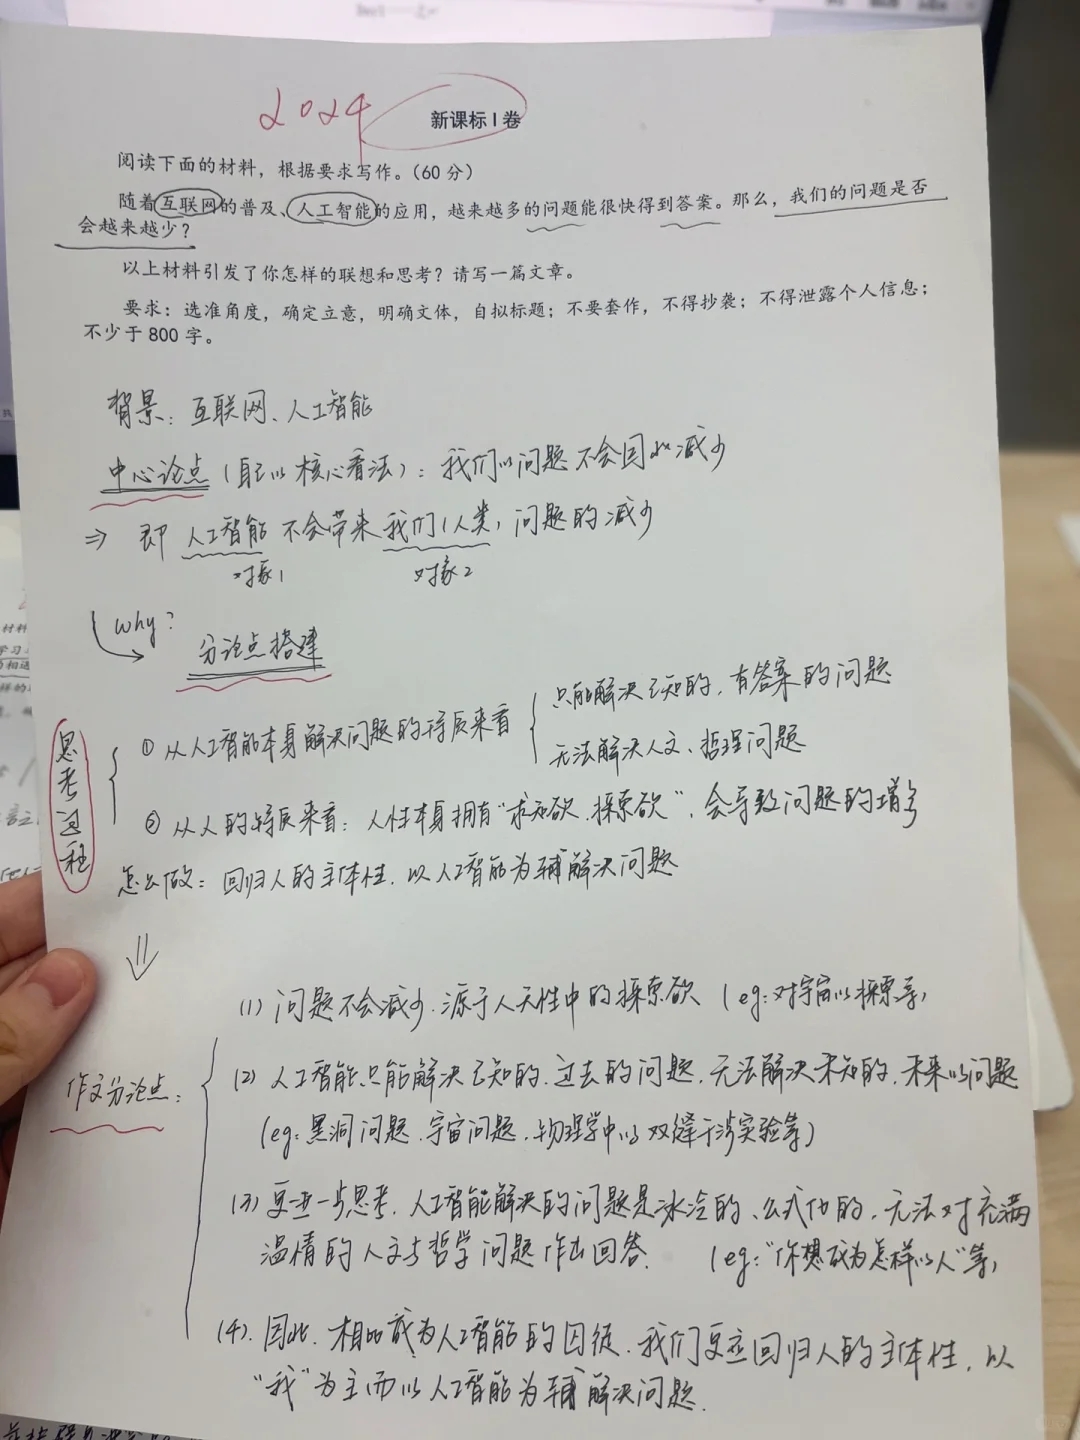 2024
新课标I卷
阅读下面的材料，根据要求写作。(60分)
随着互联网的普及、人工智能的应用，越来越多的问题能很快得到答案。那么，我们的问题是否
会越来越少？
以上材料引发了你怎样的联想和思考？请写一篇文章。
要求：选准角度，确定立意，明确文体，自拟标题；不要套作，不得抄袭；不得泄露个人信息；
不少于800字。
背景：互联网、人工智能
中心论点（自己以核心看法）：我们以问题不会因此减少
⇒ 即 人工智能 不会带来 我们(人类)问题的减少
对象1 对象2
Why?
分论点搭建
思考过程
① 从人工智能本身解决问题的特质来看
只能解决已知的、有答案的问题
无法解决人文、哲理问题
② 从人的特质来看：人性本身拥有“求知欲、探索欲”，会导致问题的增多
怎么做：回归人的主体性，以人工智能为辅解决问题
作文分论点：
(1) 问题不会减少，源于人天性中的探索欲（eg：对宇宙以探索等）
(2) 人工智能只能解决已知的、过去的问题，无法解决未知的、未来以问题
（eg：黑洞问题、宇宙问题、物理学中以双缝干涉实验等）
(3) 更进一步思考，人工智能解决的问题是冰冷的、公式化的，无法对充满
温情的人文与哲学问题作出回答. （eg：“你想成为怎样以人”等）
(4). 因此，相比成为人工智能的囚徒，我们更应回归人的主体性，以
“我”为主而以人工智能为辅解决问题.